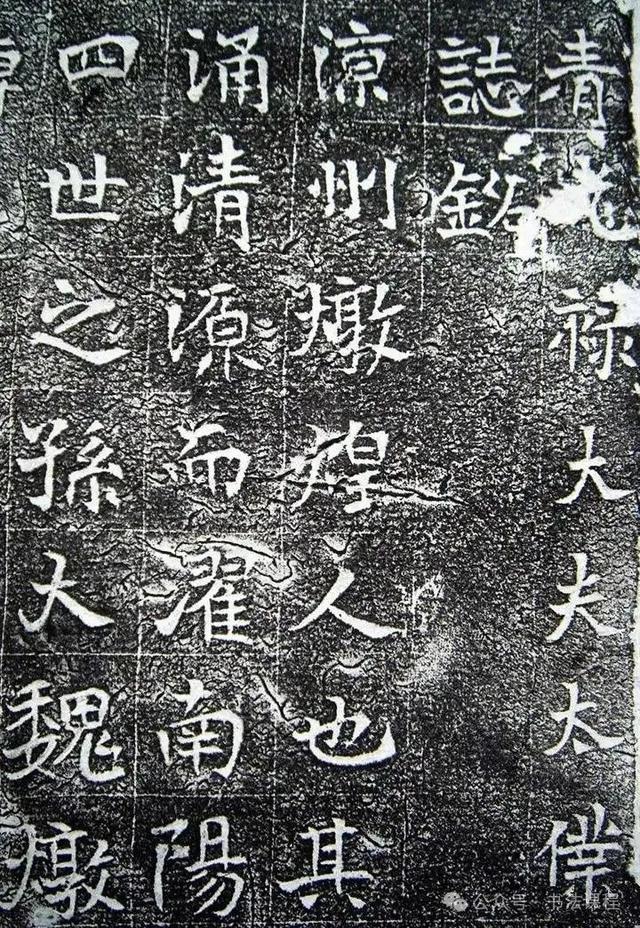 青光祿大夫太僕
誌銘
涼州燉煌人也其
涌清源而濯南陽
四世之孫大魏燉
公众号·书法课程